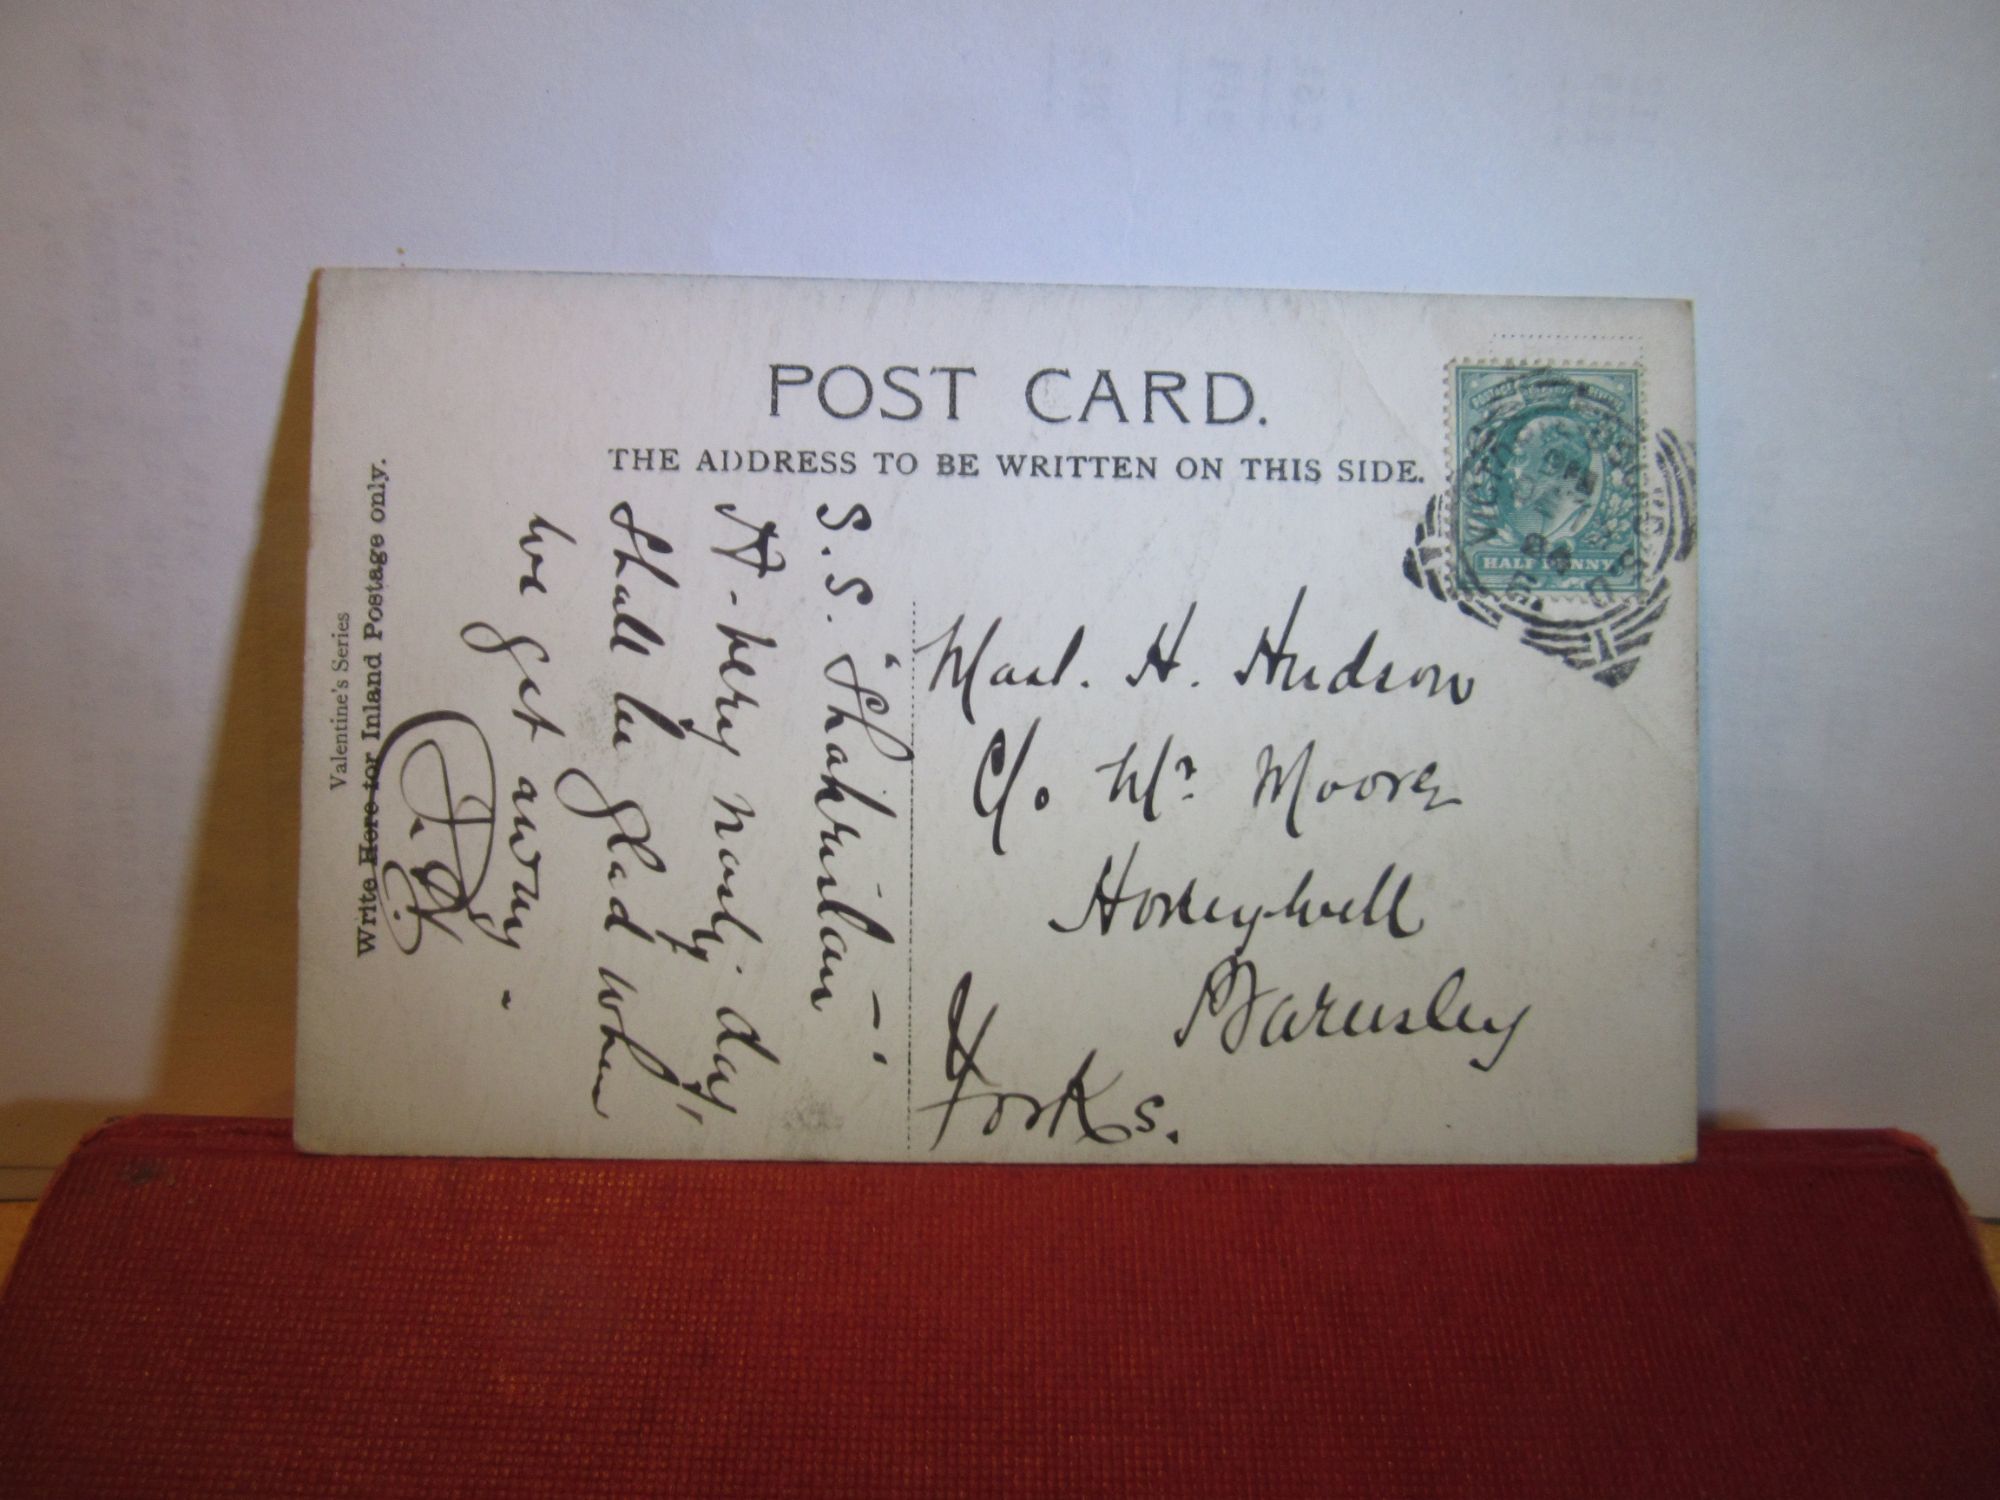 POST CARD.
THE ADDRESS TO BE WRITTEN ON THIS SIDE.
HALF PENNY
Mast. H. Hudson
C/o Mr Moore
Honeywell
Barnsley
Yorks.
S.S. "Shahristan" —
A very nasty day,
Shall be glad when
we get away.
Write Here for Inland Postage only.
Valentine's Series